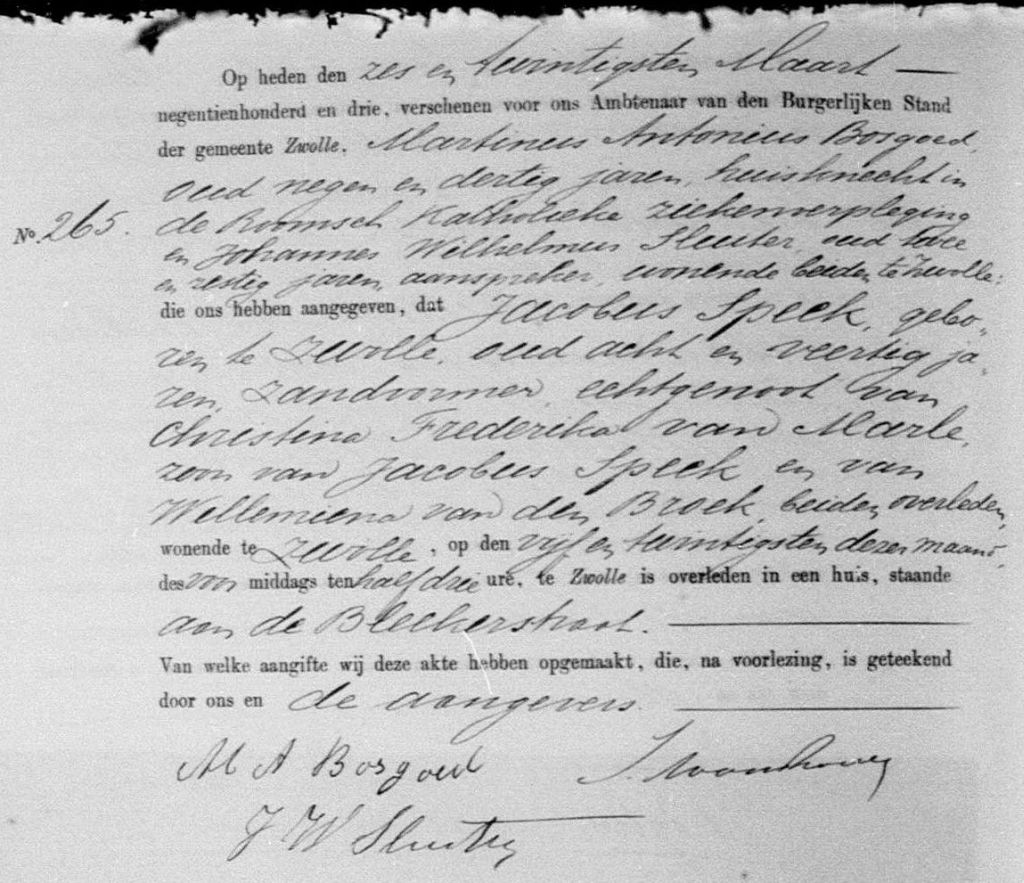 Op heden den zes en twintigsten Maart
negentienhonderd en drie, verschenen voor ons Ambtenaar van den Burgerlijken Stand
der gemeente Zwolle, Martinus Antonius Bosgoed,
oud negen en dertig jaren, huisknecht in
No. 265. de Roomsch Katholieke ziekenverpleging
en Johannes Wilhelmus Sluiter, oud twee
en zestig jaren, aanspreker, wonende beiden te Zwolle:
die ons hebben aangegeven, dat Jacobus Speek, gebo-
ren te Zwolle, oud acht en veertig ja-
ren, zandvormer, echtgenoot van
Christina Frederika van Marle,
zoon van Jacobus Speek en van
Willemiena van den Broek, beiden overleden,
wonende te Zwolle, op den vijf en twintigsten dezer maand,
des voor middags ten half drie ure, te Zwolle is overleden in een huis, staande
aan de Bleekerstraat.
Van welke aangifte wij deze akte hebben opgemaakt, die, na voorlezing, is geteekend
door ons en de aangevers.
M A Bosgoed
J W Sluiter